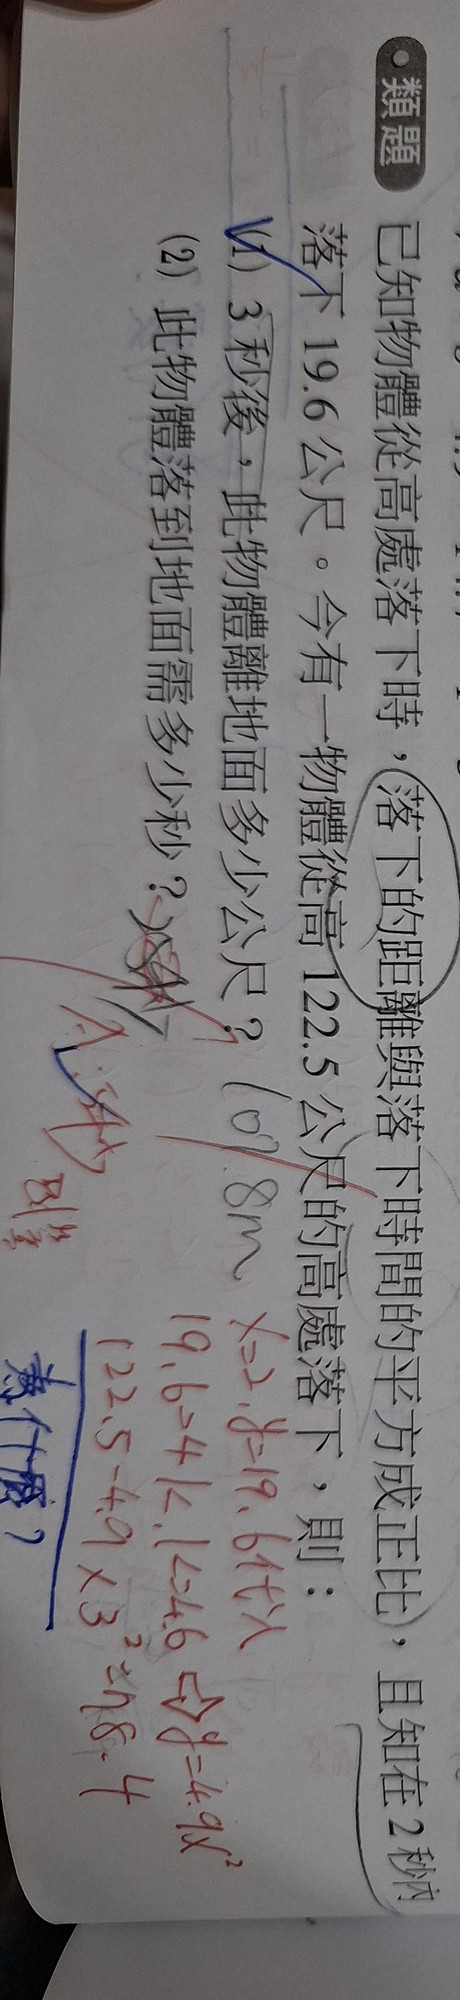 類題
已知物體從高處落下時，落下的距離與落下時間的平方成正比，且知在2秒內
落下19.6公尺。今有一物體從高122.5公尺的高處落下，則：
(1) 3秒後，此物體離地面多少公尺？ 107.8m
(2) 此物體落到地面需多少秒？
x=2, y=19.6代入
19.6=4k, k=4.6 ⇨ y=4.9x²
122.5-4.9×3²=78.4
為什麼？